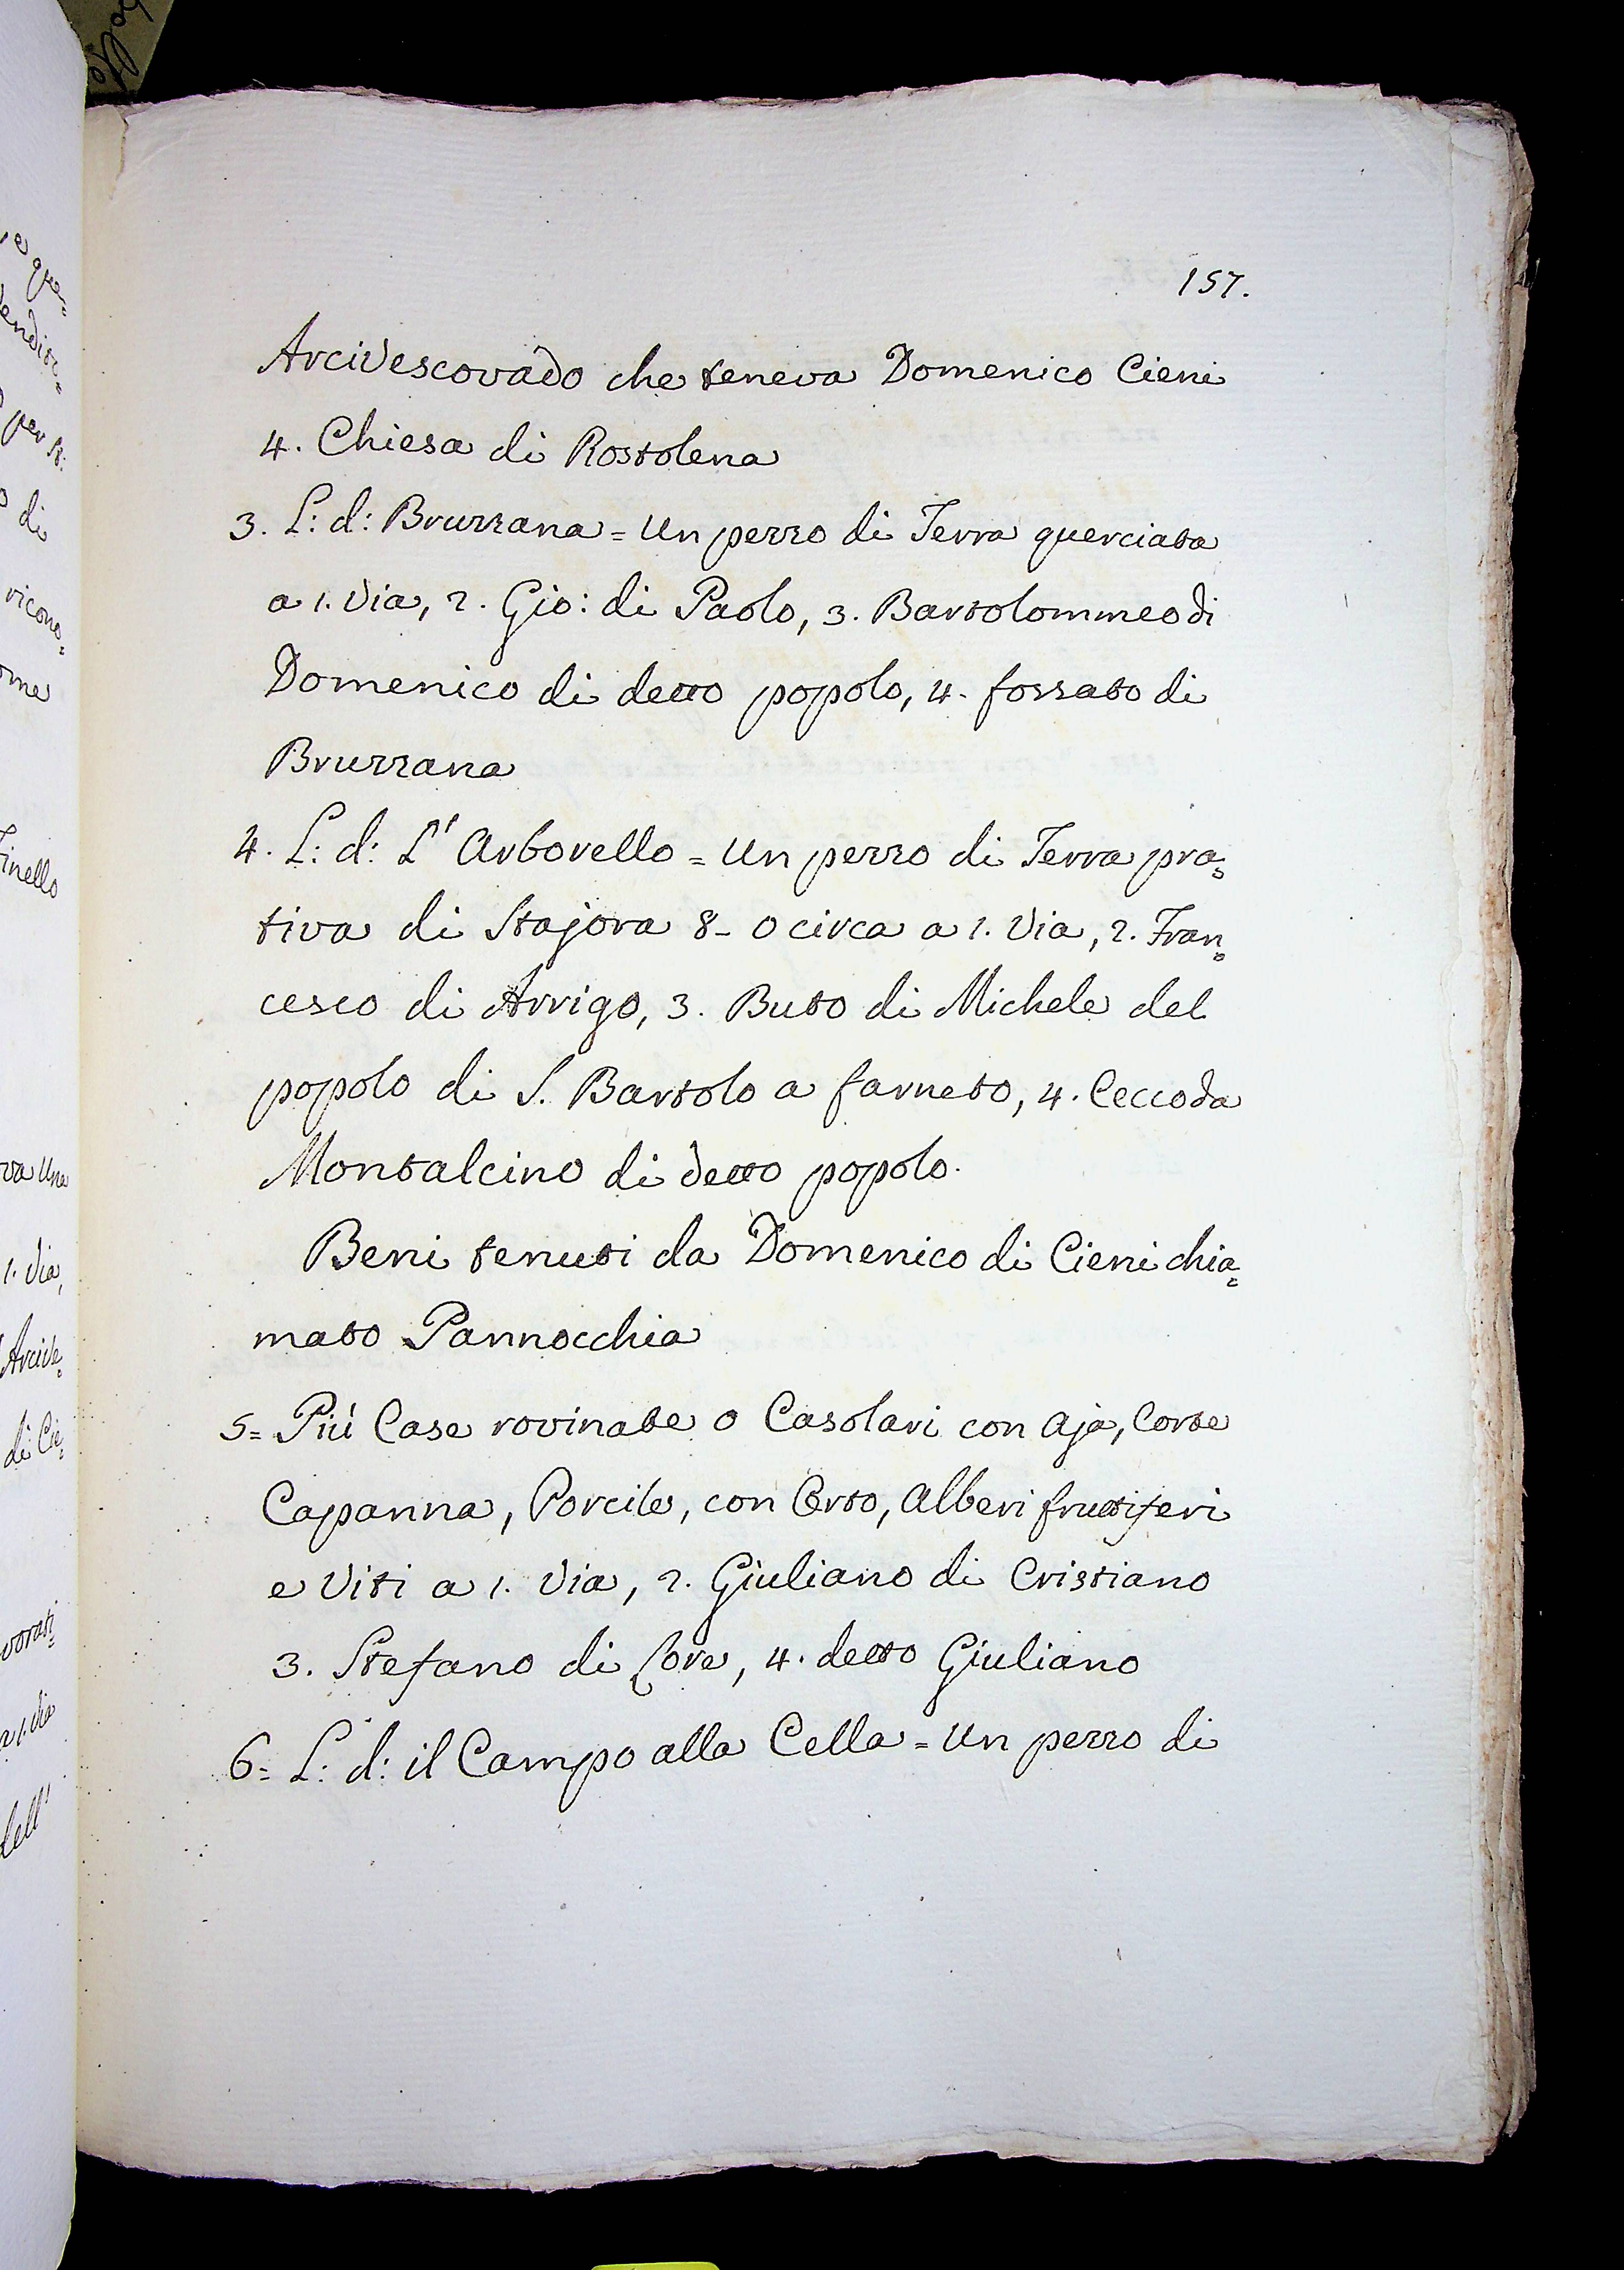 157.
Arcivescovado che teneva Domenico Cieni
4. Chiesa di Rostolena
3. L: d: Bruzzana = Un pezzo di Terra querciata
a 1. Via, 2. Gio: di Paolo, 3. Bartolommeo di
Domenico di detto popolo, 4. fossato di
Bruzzana
4. L: d: L' Arborello = Un pezzo di Terra pra=
tiva di Stajora 8_ 0 circa a 1. Via, 2. Fran=
cesco di Arrigo, 3. Buto di Michele del
popolo di S. Bartolo a farneto, 4. Cecco da
Montalcino di detto popolo.
Beni tenuti da Domenico di Cieni chia=
mato Pannocchia
5= Più Case rovinate o Casolari con Aja, Corte
Capanna, Porcile, con Orto, Alberi fruttiferi
e Viti a 1. Via, 2. Giuliano di Cristiano
3. Stefano di Core, 4. detto Giuliano
6= L: d: il Campo alla Cella = Un pezzo di